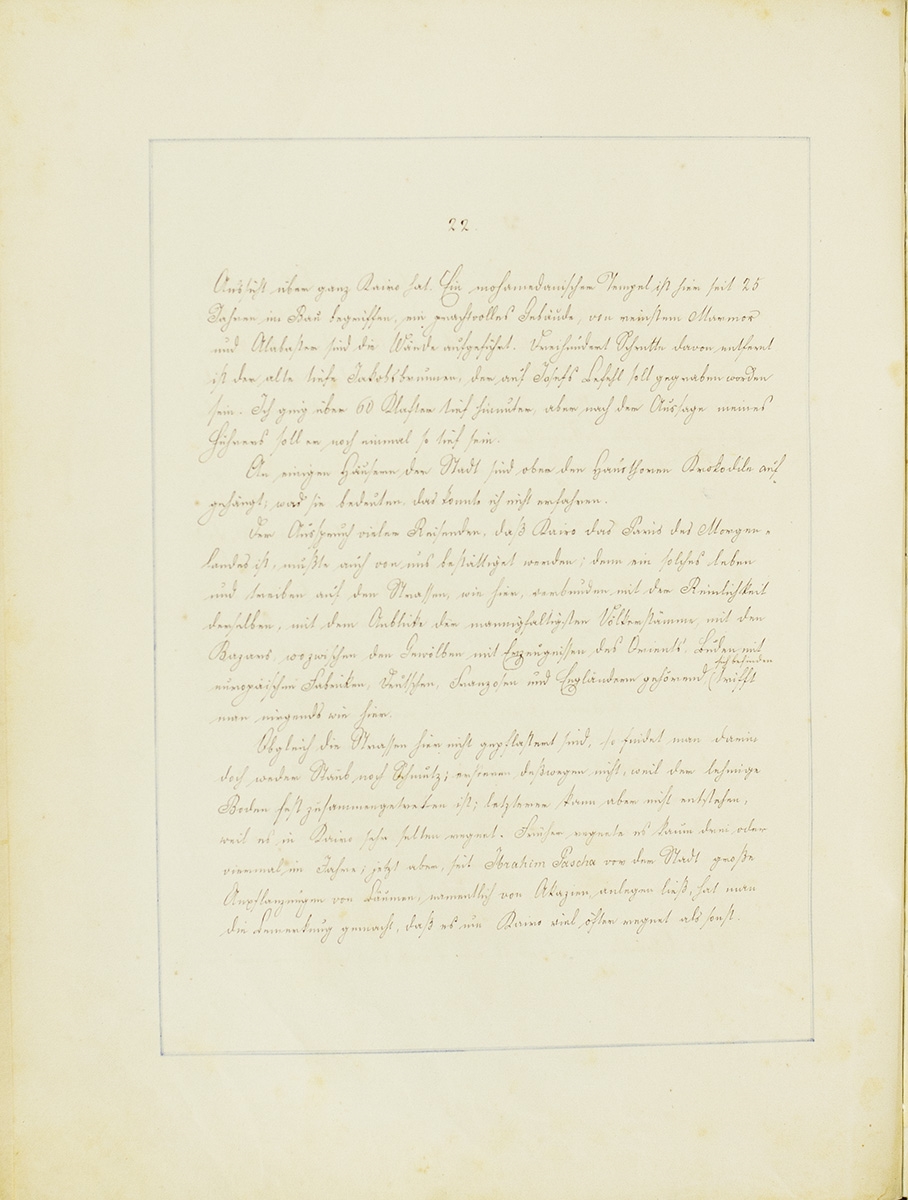 22
Aussicht über ganz Kairo hat. Ein mohamedanischer Tempel ist hier seit 25
Jahren im Bau begriffen, ein prachtvolles Gebäude, von reinstem Marmor
und Alabaster sind die Wände aufgeführt. Dreihundert Schritte davon entfernt
ist der alte tiefe Jakobsbrunnen, der auf Josefs Befehl soll gegraben worden
sein. Ich gieng über 60 Klafter tief hinunter, aber nach der Aussage meines
Führers soll er noch einmal so tief sein.
An einigen Häusern der Stadt sind ober den Hausthoren Krokodile auf-
gehängt; was sie bedeuten, das konnte ich nicht erfahren.
Der Ausspruch vieler Reisenden, daß Kairo das Paris des Morgen-
landes ist, mußte auch von uns bestättiget werden; denn ein solches leben
und treiben auf den Strassen, wie hier, verbunden mit der Reinlichkeit
derselben, mit dem Anblicke der mannigfaltigsten Völkerstämme, mit den
Bazars, wozwischen den Gewölben mit Erzeugnissen des Orients, Buden mit
europäischen Fabriken, Deutschen, Franzosen und Engländern gehörend (sich befinden
trifft
man nirgends wie hier.
Obgleich die Strassen hier nicht gepflastert sind, so findet man darin
doch weder Staub noch Schmutz; ersteren deßwegen nicht, weil der lehmige
Boden fest zusammengetretten ist; letzterer kann aber nicht entstehen,
weil es in Kairo sehr selten regnet. Früher regnete es kaum drei oder
viermal im Jahre; jetzt aber, seit Ibrahim Pascha vor der Stadt große
Anpflanzungen von Bäumen, namentlich von Akazien anlegen ließ, hat man
die Bemerkung gemacht, daß es nun Kairo viel öfter regnet als sonst.